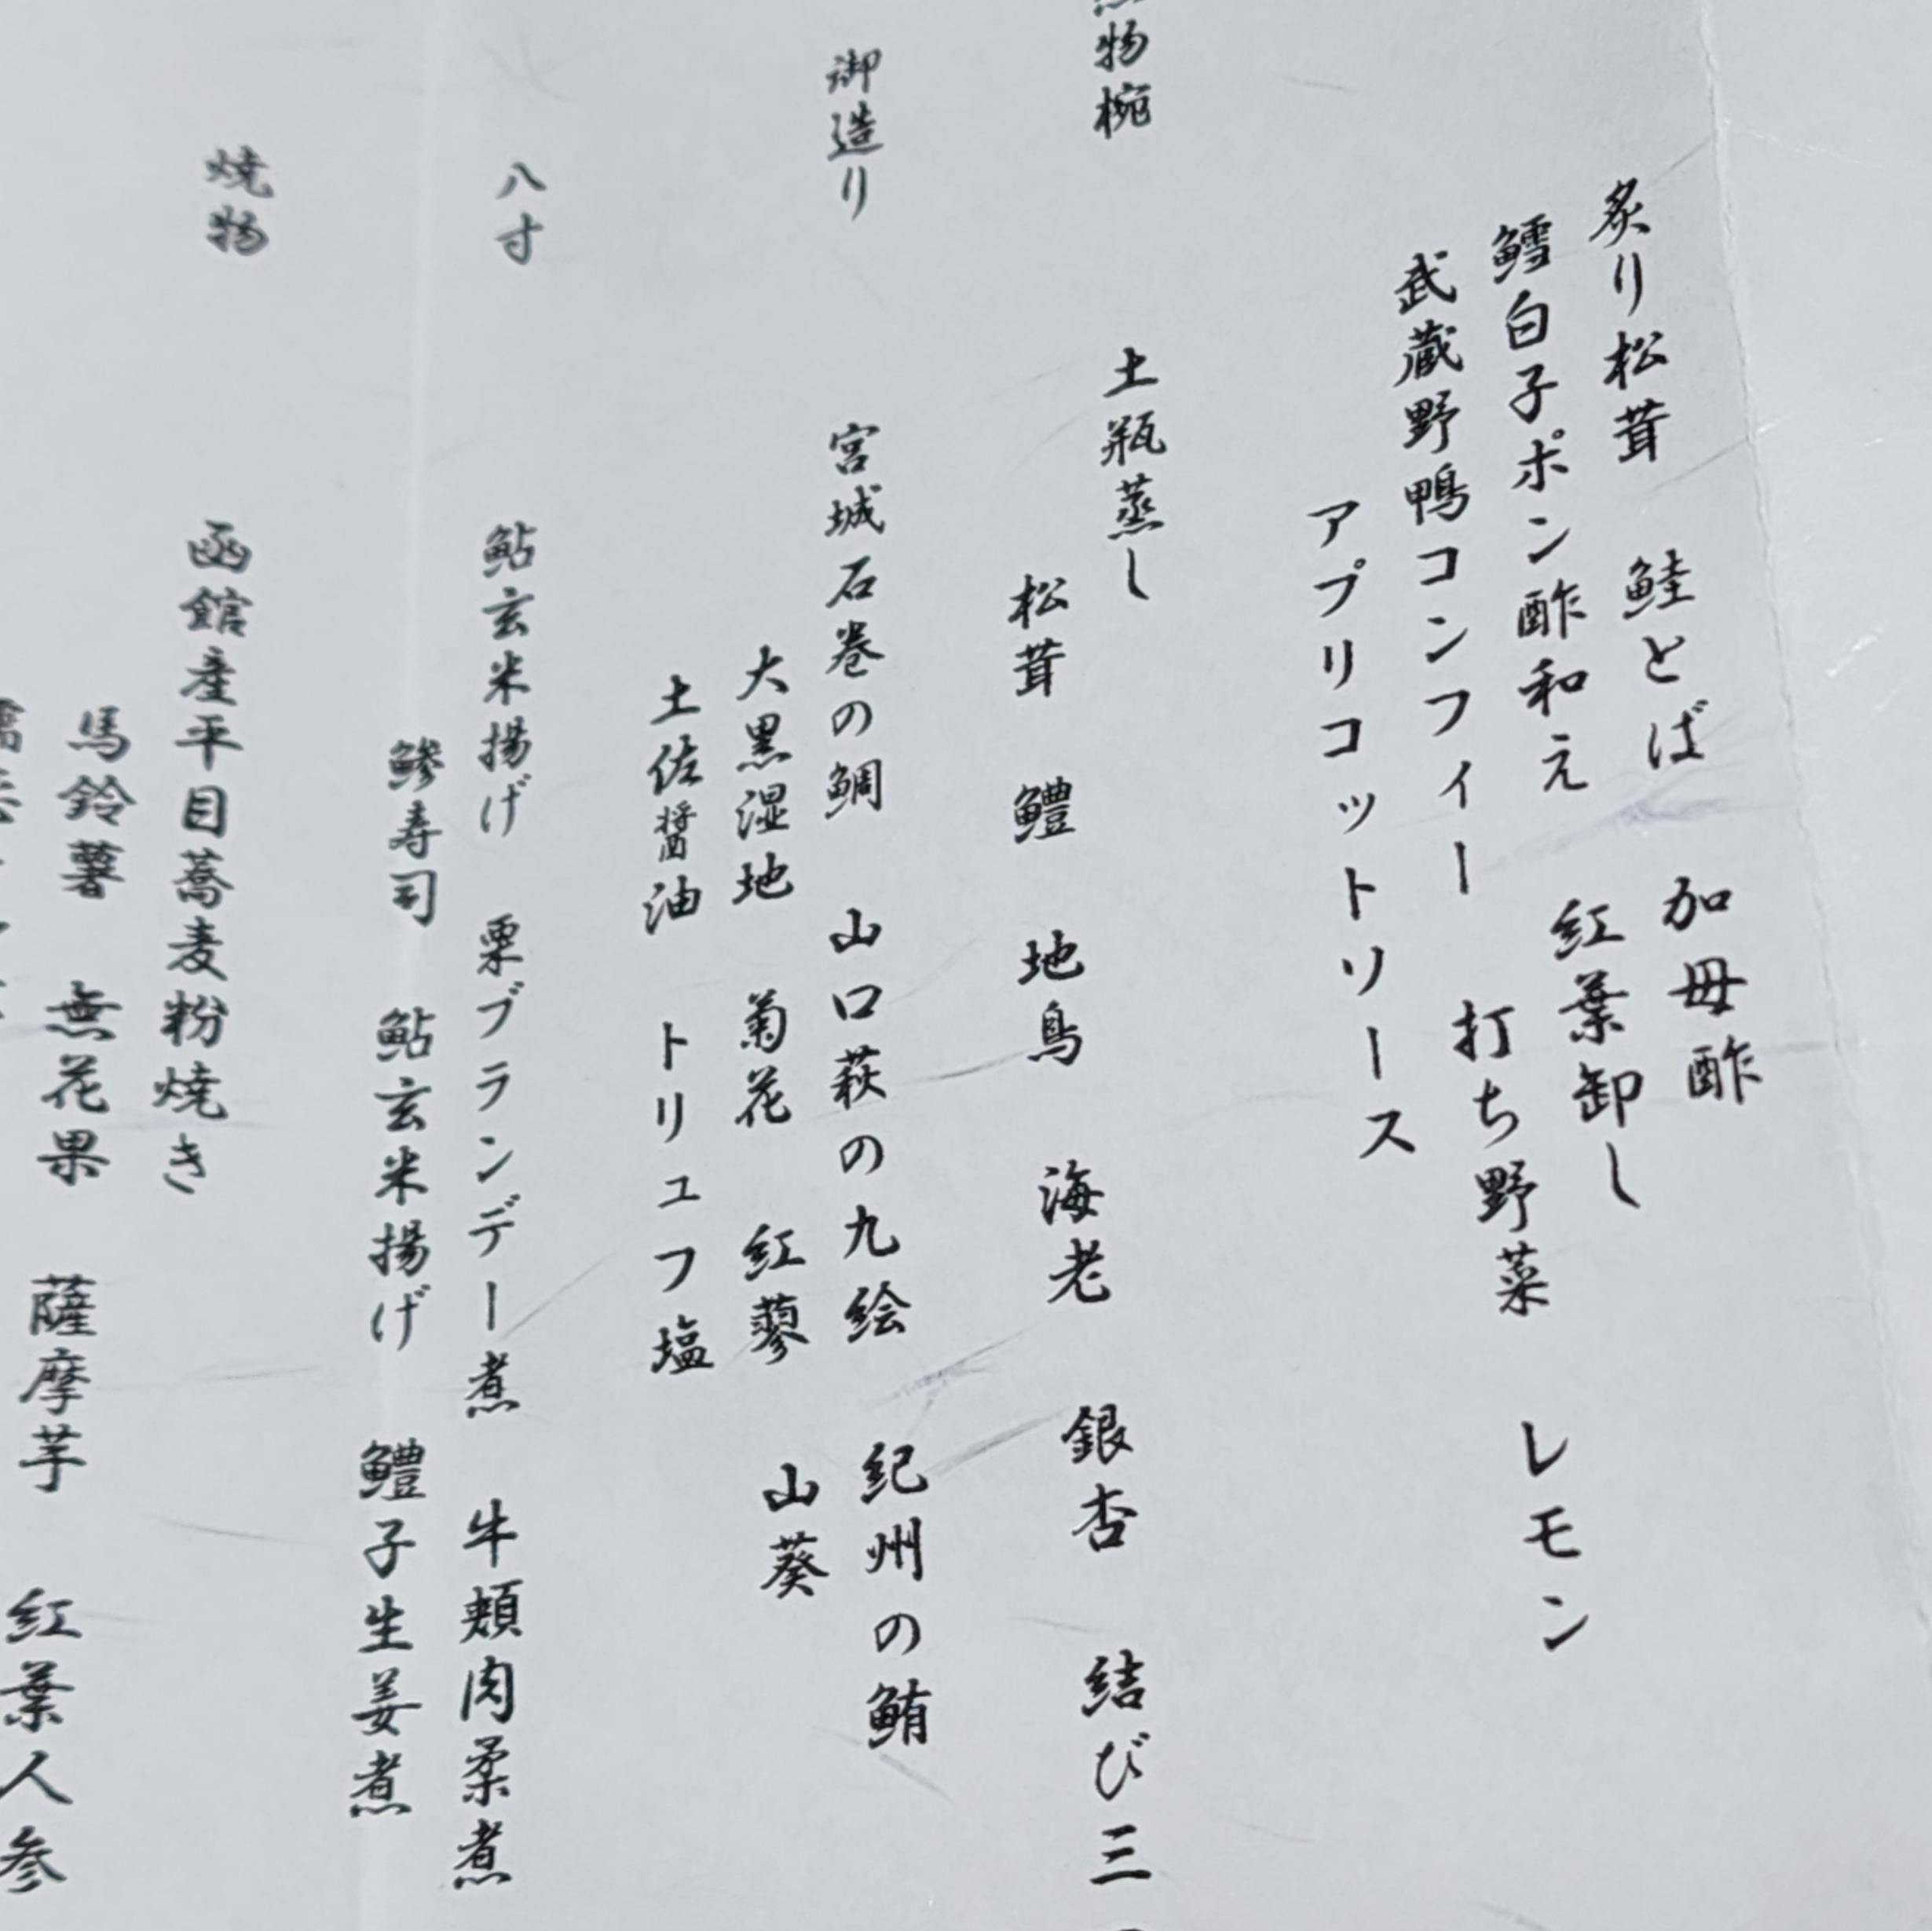 炙り松茸 鮭とば 加母酢
鱈白子ポン酢和え 紅葉卸し
武蔵野鴨コンフィー 打ち野菜 レモン
アプリコットリース
物椀
土瓶蒸し
松茸 鱧 地鳥 海老 銀杏 結び三
御造り
宮城石巻の鯛 山口萩の九絵 紀州の鮪
大黒湿地 菊花 紅蓼 山葵
土佐醤油 トリュフ塩
八寸
鮎玄米揚げ 栗ブランデー煮 牛頬肉柔煮
鯵寿司 鮎玄米揚げ 鱧子生姜煮
焼物
函館産平目蕎麦粉焼き
馬鈴薯 無花果 薩摩芋 紅葉人参